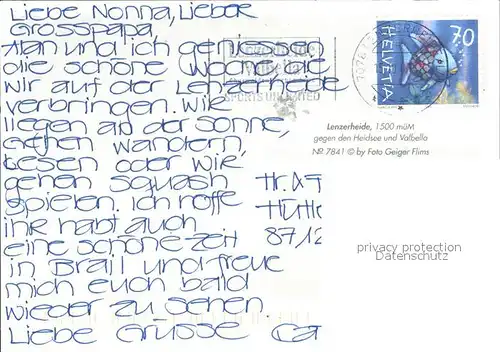 Liebe Nonna, Lieber
Grosspapa
Alan und ich geniessen
die schöne Woche die
wir auf der Lenzerheide
verbringen. Wir
liegen an der Sonne,
gehen wandern,
lesen oder wir
gehen squash
spielen. Ich hoffe
ihr habt auch
eine schöne Zeit
in Brail und freue
mich euch bald
wieder zu sehen.
Liebe Grüsse Cat
HELVETIA
70
Lenzerheide
Valbella
SPORTS UNLIMITED
Lenzerheide, 1500 müM
gegen den Heidsee und Valbella
NR 7841 © by Foto Geiger Flims
8712
privacy protection
Datenschutz